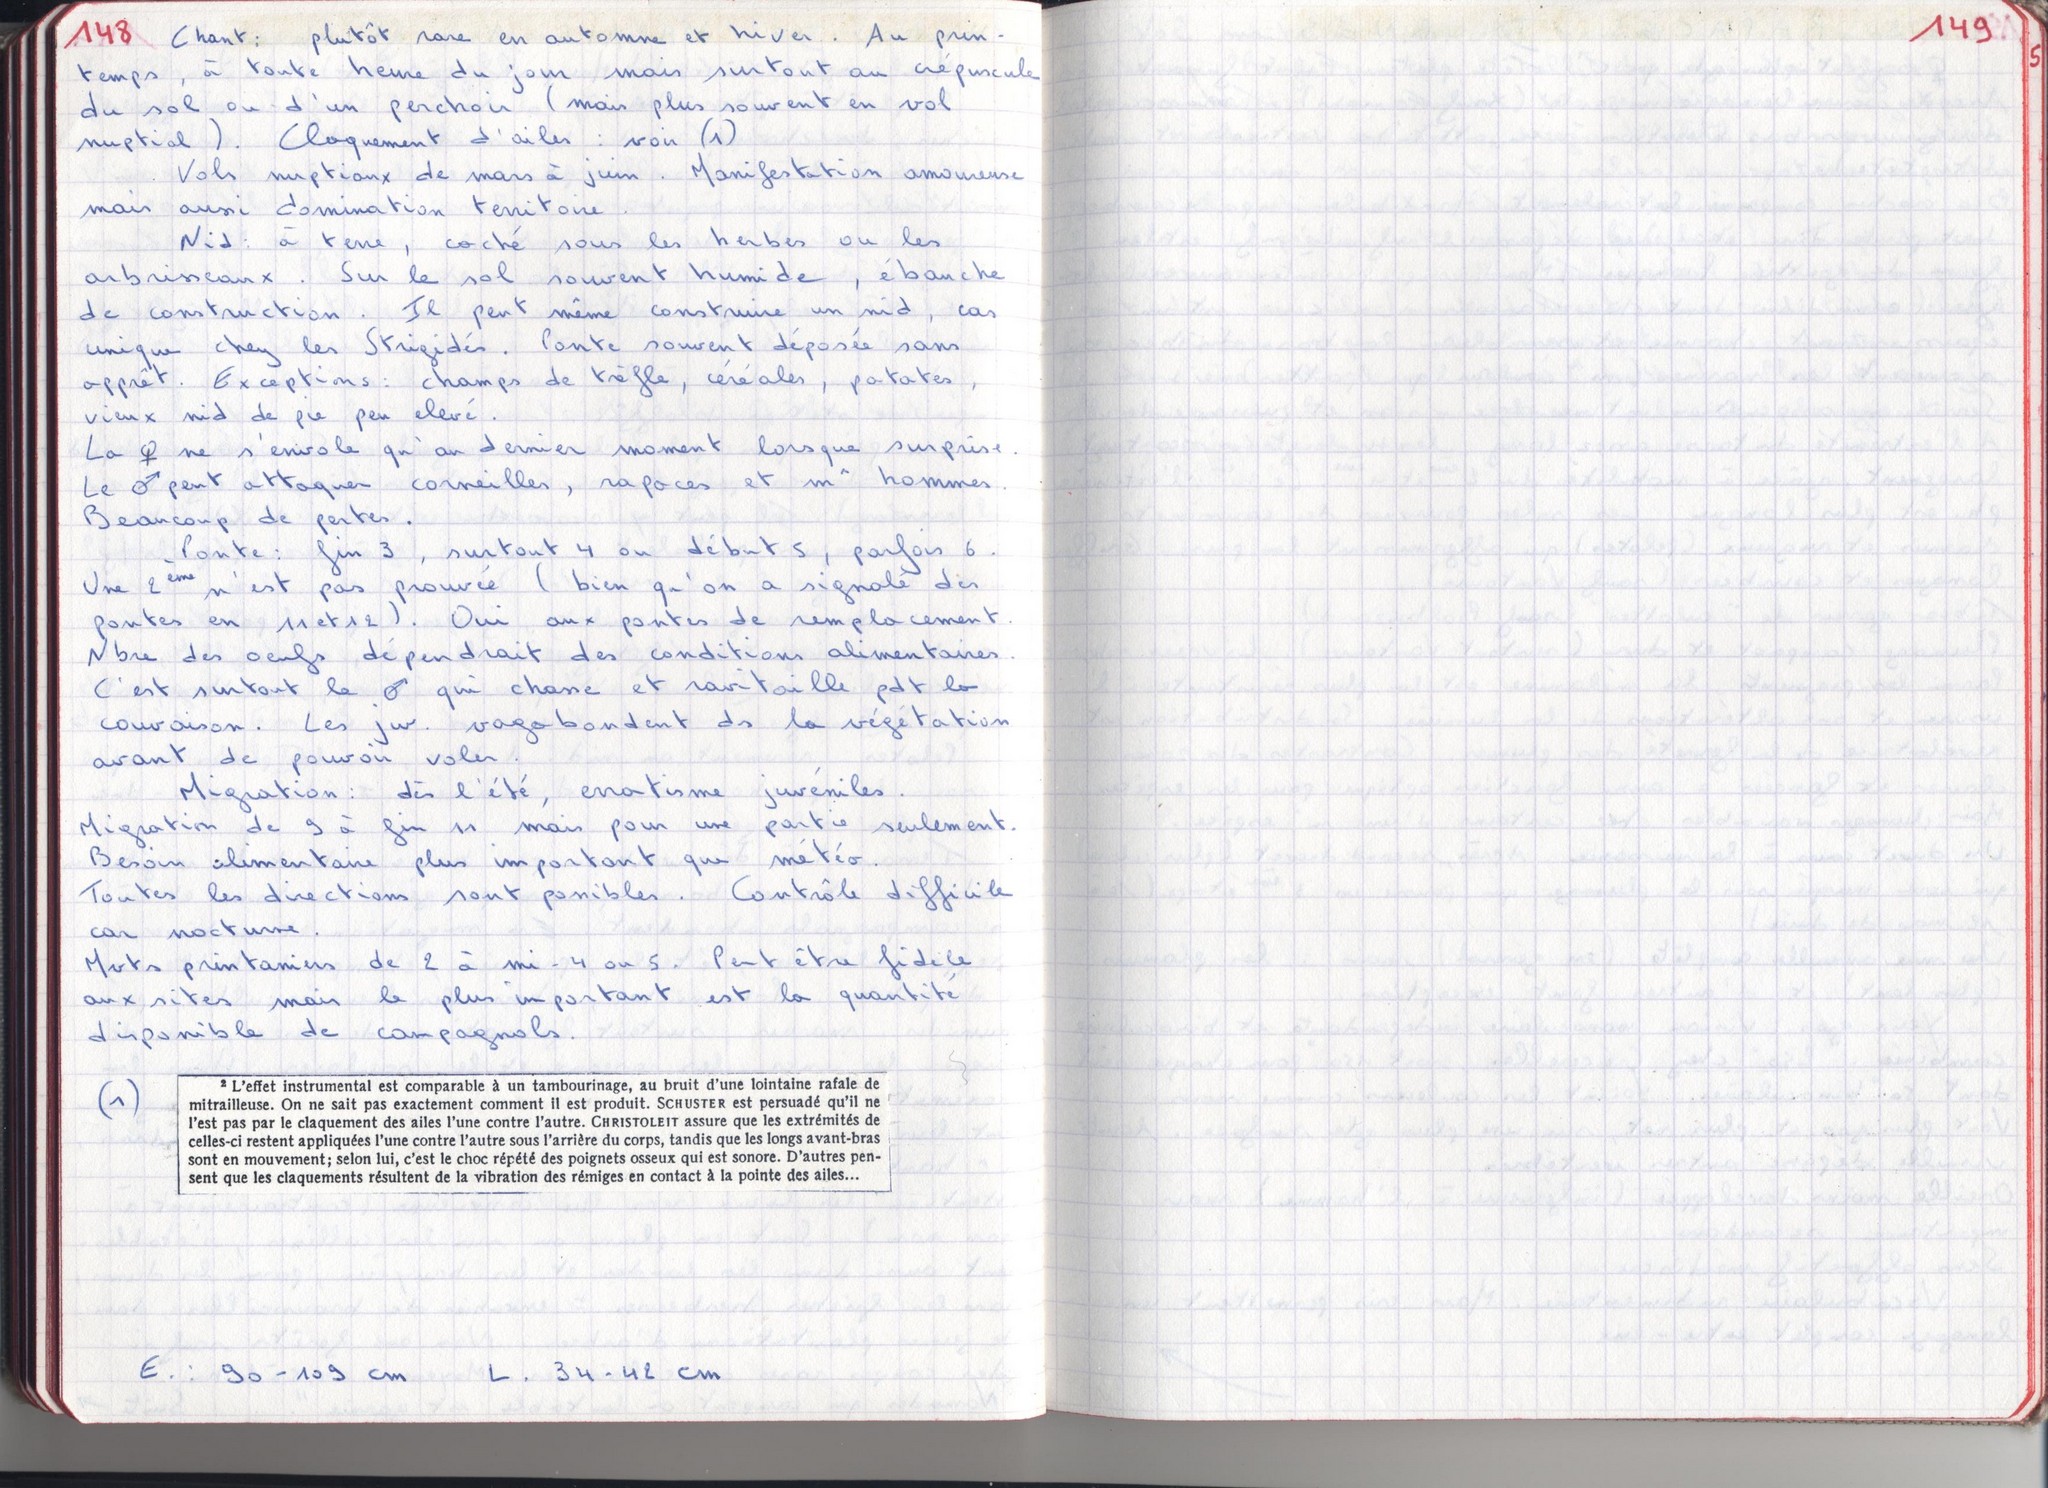 148
Chant : plutôt rare en automne et hiver. Au prin-
temps, à toute heure du jour mais surtout au crépuscule
du sol ou d'un perchoir (mais plus souvent en vol
nuptial). Claquement d'ailes : voir (1)
Vols nuptiaux de mars à juin. Manifestation amoureuse
mais aussi domination territoire.
Nid : à terre, caché sous les herbes ou les
arbrisseaux. Sur le sol souvent humide, ébauche
de construction. Il peut même construire un nid, cas
unique chez les Strigidés. Ponte souvent déposée sans
apprêt. Exceptions : champs de trèfle, céréales, patates,
vieux nid de pie peu elevé.
La ♀ ne s'envole qu'au dernier moment lorsque surprise.
Le ♂ peut attaquer corneilles, rapaces et m^ hommes.
Beaucoup de pertes.
Ponte : fin 3, surtout 4 ou début 5, parfois 6.
Une 2ème n'est pas prouvée (bien qu'on a signalé des
pontes en 11 et 12). Oui aux pontes de remplacement.
Nbre des oeufs dépendrait des conditions alimentaires.
C'est surtout le ♂ qui chasse et ravitaille pdt la
couvaison. Les juv. vagabondent ds la végétation
avant de pouvoir voler.
Migration : dès l'été, erratisme juvéniles.
Migration de 9 à fin 11 mais pour une partie seulement.
Besoin alimentaire plus important que météo.
Toutes les directions sont possibles. Contrôle difficile
car nocturne.
Mvts printaniers de 2 à mi-4 ou 5. Peut être fidèle
aux sites mais le plus important est la quantité
disponible de campagnols.
(1)
² L'effet instrumental est comparable à un tambourinage, au bruit d'une lointaine rafale de
mitrailleuse. On ne sait pas exactement comment il est produit. SCHUSTER est persuadé qu'il ne
l'est pas par le claquement des ailes l'une contre l'autre. CHRISTOLEIT assure que les extrémités de
celles-ci restent appliquées l'une contre l'autre sous l'arrière du corps, tandis que les longs avant-bras
sont en mouvement; selon lui, c'est le choc répété des poignets osseux qui est sonore. D'autres pen-
sent que les claquements résultent de la vibration des rémiges en contact à la pointe des ailes...
E. : 90-109 cm L. 34-42 cm
149
5